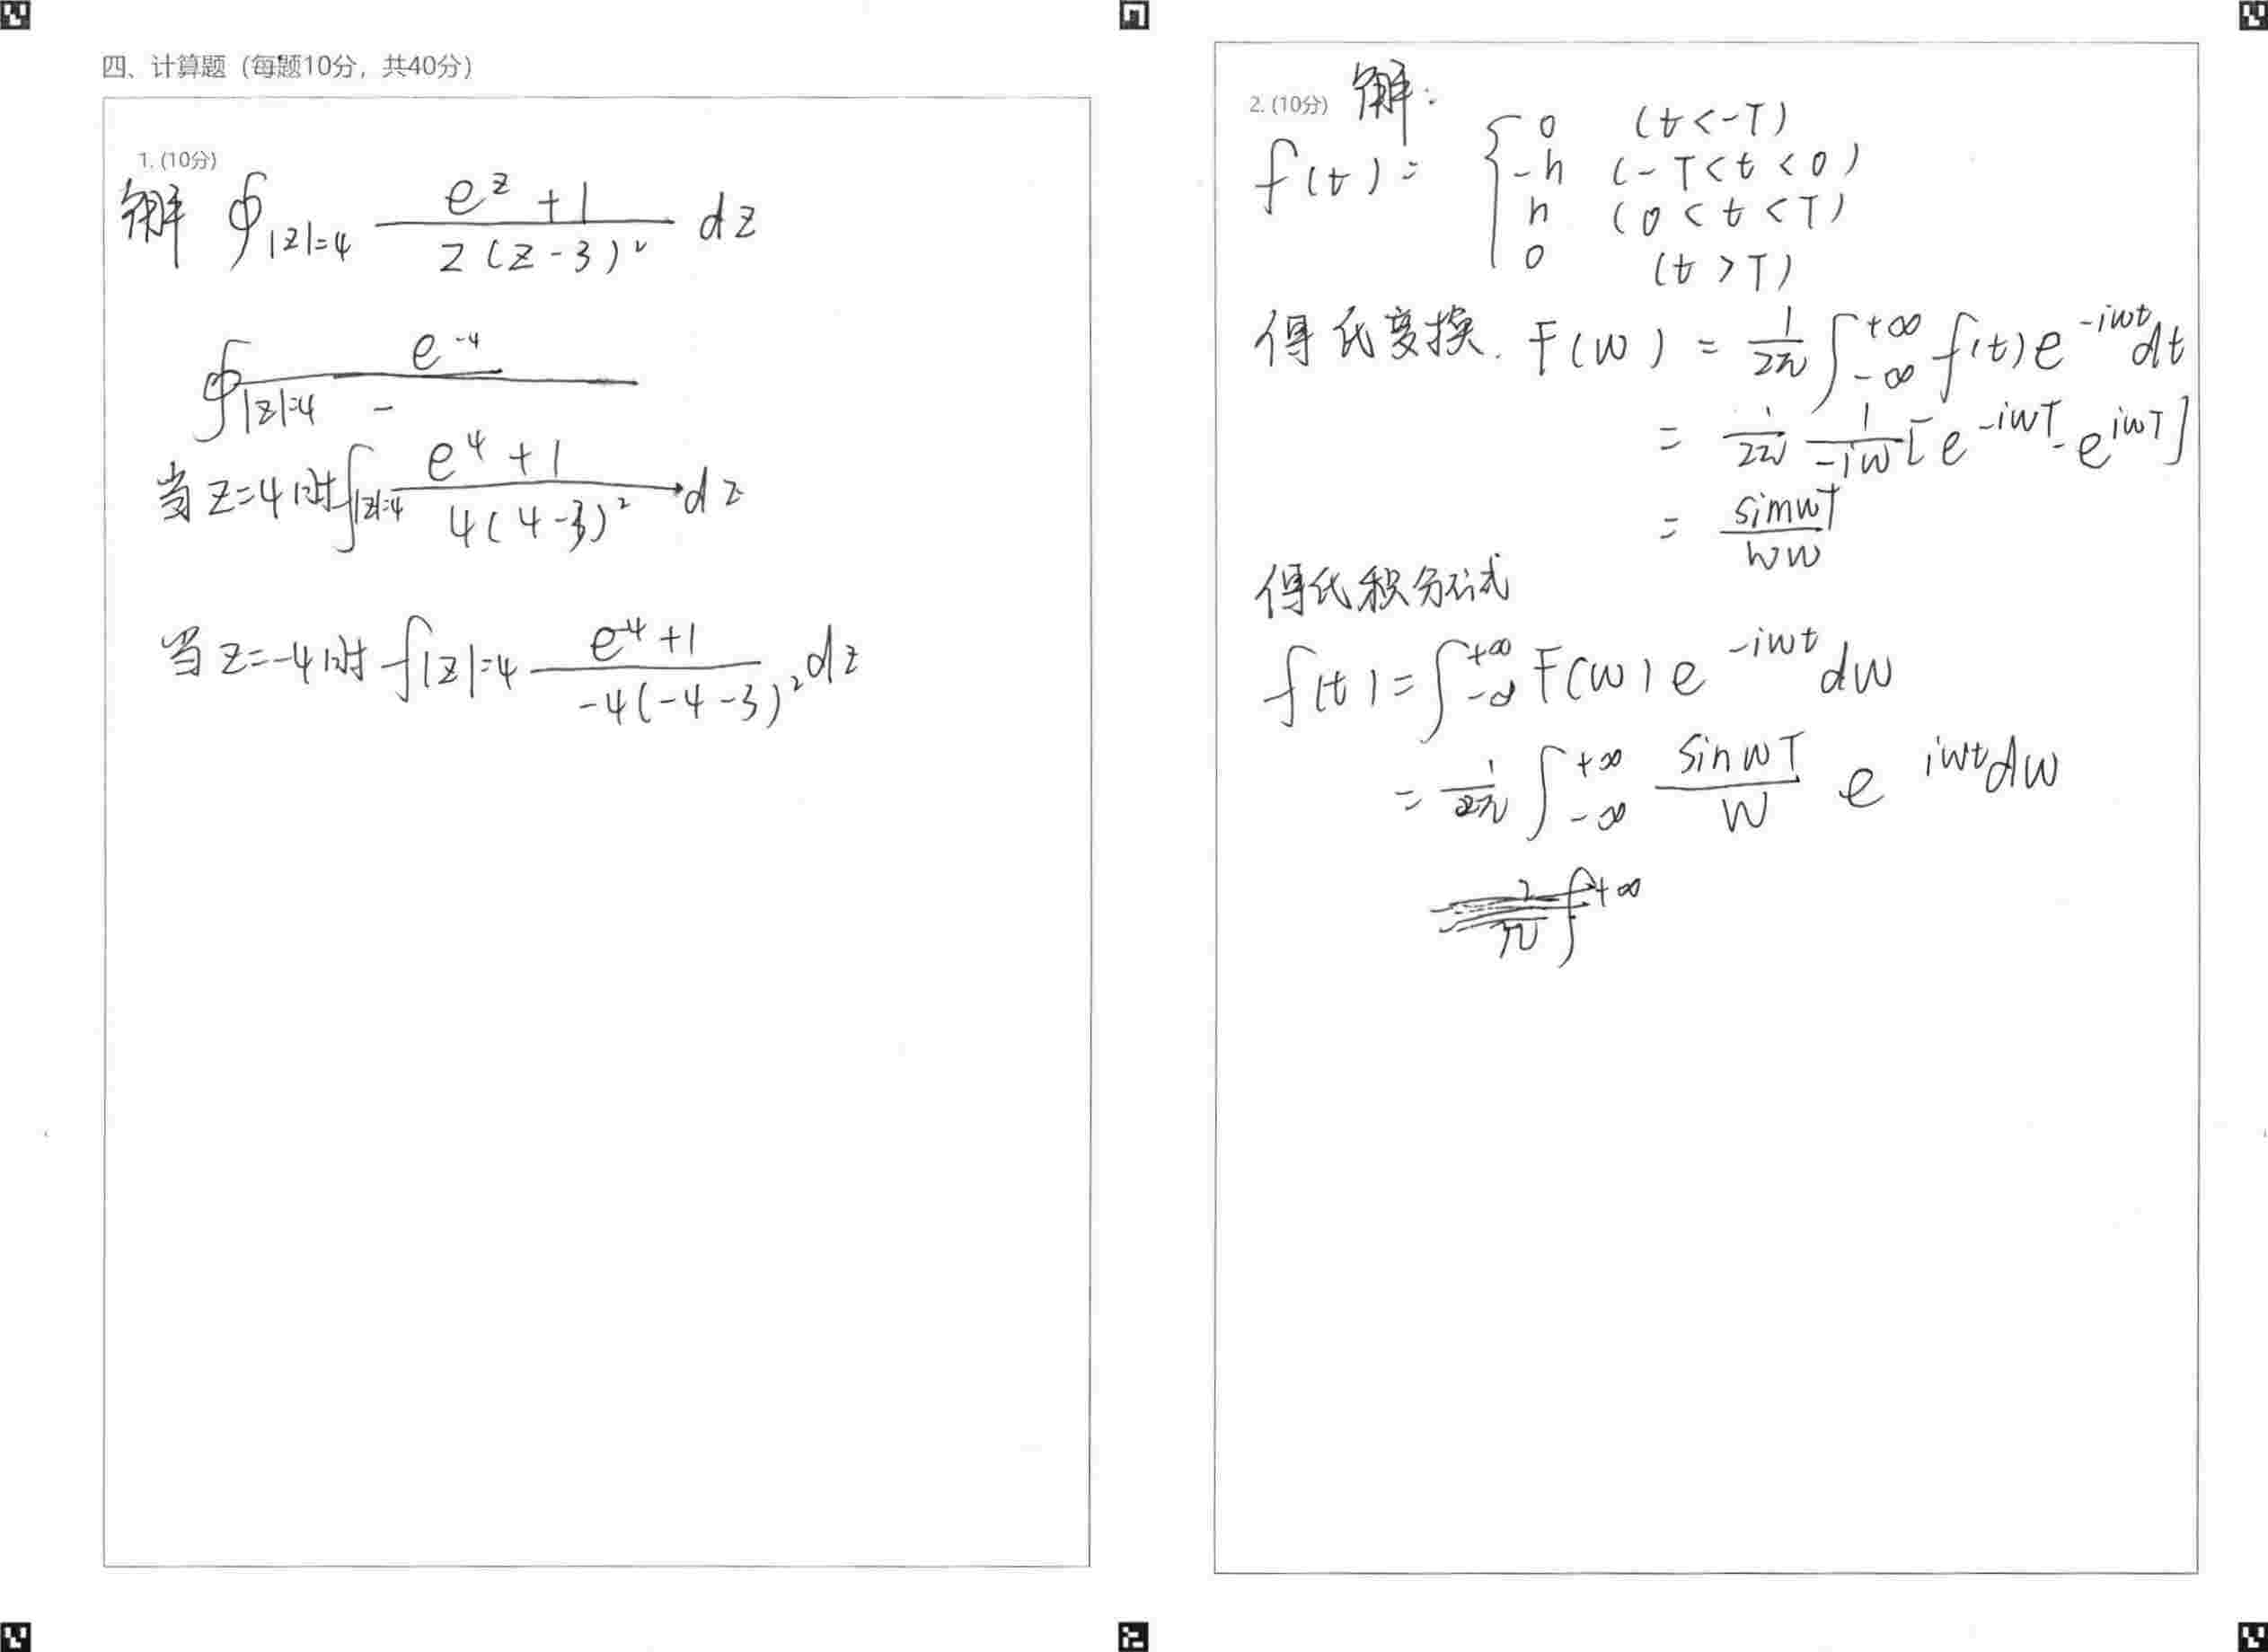 四、计算题（每题10分，共40分）
1. (10分)
解 ∮|z|=4 (e^z + 1) / (z(z-3)²) dz
∮|z|=4 e^-4 / -
当z=4时∫|z|=4 (e^4 + 1) / (4(4-3)²) dz
当z=-4时 ∫|z|=4 (e^-4 + 1) / (-4(-4-3)²) dz
2. (10分) 解:
f(t) = { 0 (t < -T)
-h (-T < t < 0)
h (0 < t < T)
0 (t > T)
得氏变换. F(w) = 1/2π ∫_-∞^+∞ f(t) e^-iwt dt
= 1/2π 1/-iw [e^-iwT - e^iwT]
= simwT / ww
得氏积分公式
f(t) = ∫_-∞^+∞ F(w) e^-iwt dw
= 1/2π ∫_-∞^+∞ sinwT / w e^iwt dw
2/π ∫^+∞